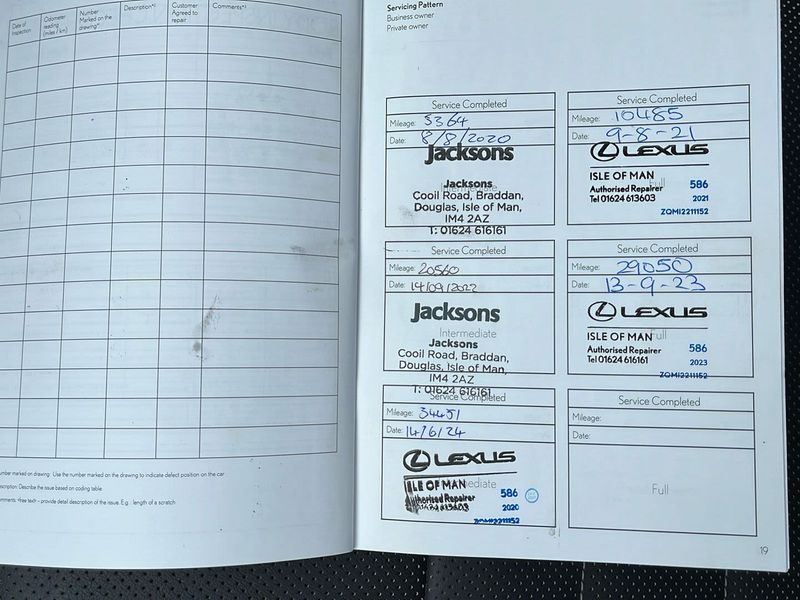 Date of Inspection
Odometer reading (miles / km)
Number Marked on the drawing*
Description*²
Customer Agreed to repair
Comments*³
number marked on drawing: Use the number on the drawing to indicate defect position on the car
scription: Describe the issue based on coding table
omments: <free text> – provide detail description of the issue. E.g.: length of a scratch
Servicing Pattern
Business owner
Private owner
Service Completed
Mileage: 5364
Date: 8/8/2020
Jacksons
Intermediate
Jacksons
Cooil Road, Braddan,
Douglas, Isle of Man,
IM4 2AZ
T: 01624 616161
Service Completed
Mileage: 10485
Date: 9-8-21
LEXUS
ISLE OF MAN
Full
Authorised Repairer 586
Tel 01624 613603 2021
ZQMI2211152
Service Completed
Mileage: 20560
Date: 14/09/2022
Jacksons
Intermediate
Jacksons
Cooil Road, Braddan,
Douglas, Isle of Man,
IM4 2AZ
T: 01624 616161
Service Completed
Mileage: 29050
Date: 13-9-23
LEXUS
ISLE OF MAN Full
Authorised Repairer 586
Tel 01624 616161 2023
ZQMI2211152
Service Completed
Mileage: 34451
Date: 14/6/24
LEXUS
ISLE OF MAN
Authorised Repairer 586
2020
ZQMI2211152
Service Completed
Mileage:
Date:
Full
19